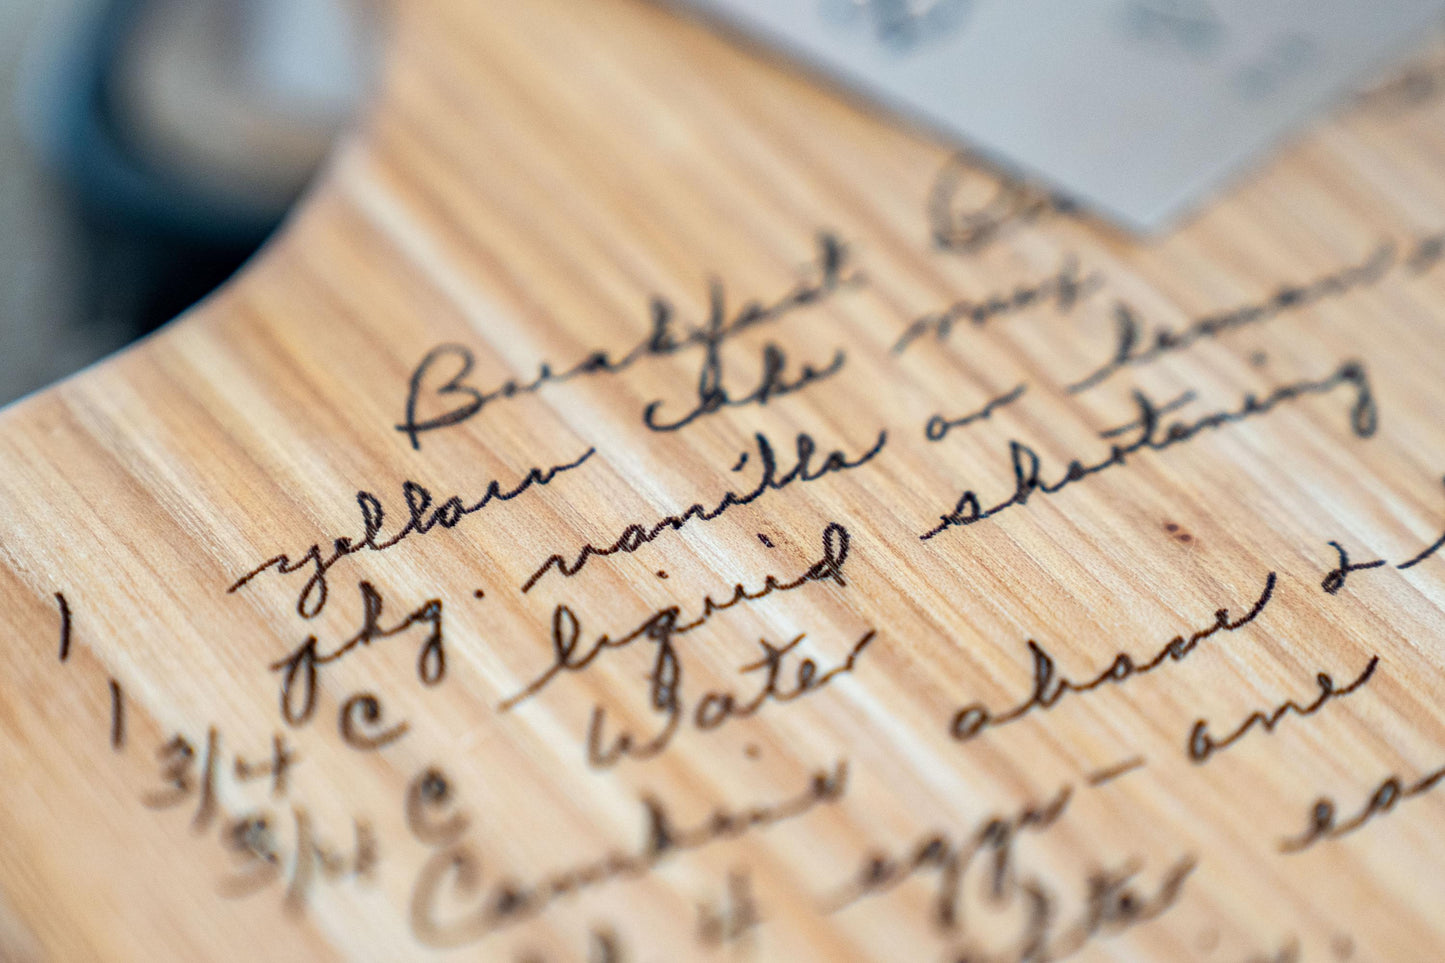 Breakfast
1 yellow cake mix
1 pkg. vanilla or lemon
3/4 C liquid shortening
3/4 C Water
Combine above 2
4 eggs - one
after ea